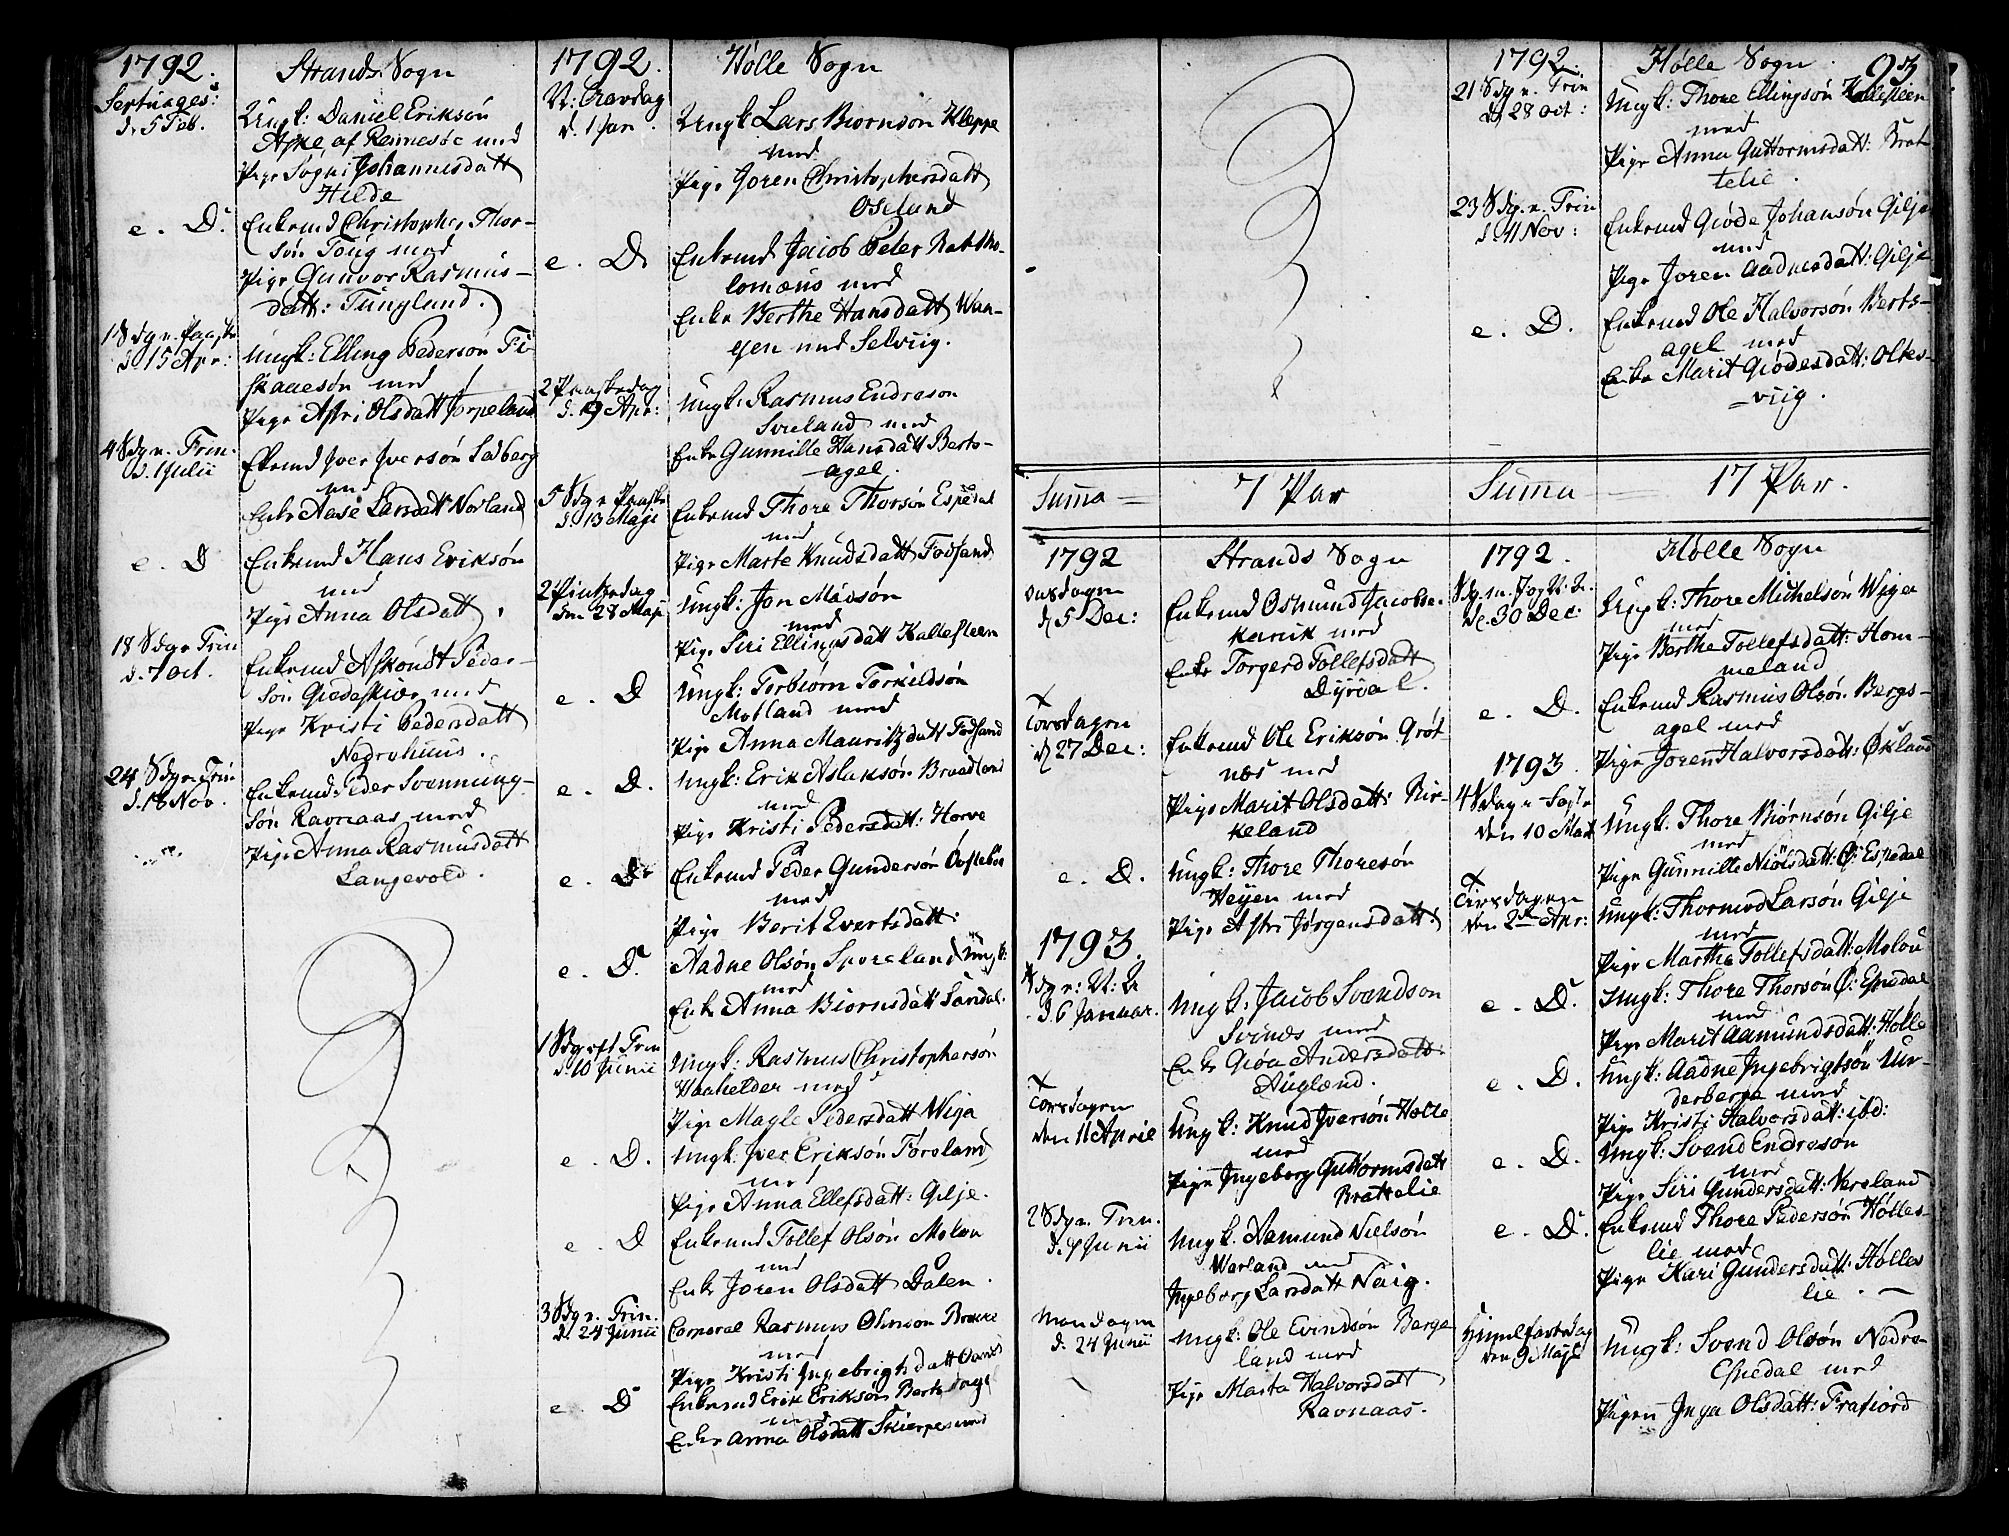 1792.
Strands Sogn
d. 5 Feb.
Ungk: Daniel Eriksøn
Aske af Rennesøe med
Pige Søgni Johannesdatt
Hilde
e. D.
Enkemd Christopher Thor-
søn Toug med
Pige Gunvor Rasmus-
datt: Tungland.
1 Sdg e. Paaske
d. 15 Apr:
Ungk: Elling Pedersøn Fi-
skaaesøn med
Pige Astri Olsdatt Jørpeland
4 Sdg e. Trin.
d. 1 Julii
Ekemd Iver Iversøn Solberg
med
Enke Aase Larsdatt Norland
e. D
Enkemd Hans Eriksøn
med
Pige Anna Olsdatt.
18 Sdg e Trin
d. 7 oct.
Enkemd Askoudt Peder-
søn Giedeskiær med
Pige Kristi Pedersdatt
Nedrehuus.
24 Sdg e. Trin
d. 18 Nov.
Enkemd Peder Svenning-
søn Ravnaas med
Pige Anna Rasmusdatt
Langevold.
1792.
Hölle Sogn
d. 1 Jan.
Ungk Lars Biørnsøn Kleppe
med
Pige Joren Christophersdatt
Oseland
e. D
Enkemd Jacob Peter Bartho-
lomæus med
Enke Berthe Hansdatt Wan-
gen med Selviig.
2 Paaskedag
d. 9 Apr:
Ungk: Rasmus Endreson
med
Enke Gunnille Hansdatt Berts-
agel.
5 Sdg e Paaske
d. 13 Maji
Enkemd Thore Thorsøn Espedal
med
Pige Marte Knudsdatt Fosfand
2 Pintsedag
den 28 Maji
Ungk: Jon Madsøn
med
Pige Siri Ellingsdatt Kallesteen
e. D
Ungk: Torbiørn Torkildsøn
Motland med
Pige Anna Mauritzdatt Fosfand
e. D.
Ungk: Erik Aslaksøn Braadland
med
Pige Kristi Pedersdatt: Horve
e. D
Enkemd Peder Gundersøn
med
Pige Berit Evertsdatt:
e. D.
Aadne Olsøn Sporeland Ungk:
med
Enke Anna Biørnsdatt Sandal.
1 Sdg eft Trin
d. 10 Junii
Ungk: Rasmus Christophersøn
med
Pige Magle Pedersdatt Wiga
e. D.
Ungk: Iver Eriksøn Føreland
med
Pige Anna Ellefsdatt: Gilje.
e. D
Enkemd Tollef Olsøn Molou
med
Enke Joren Olsdatt Dalen.
3 Sdg e. Trin.
d. 24 Junii
Corporal Rasmus
med
Pige Kristi Ingebrigtsdatt
e. D
Enkemd Erik Eriksøn Bertsagel
med
Enke Anna Olsdatt
Summa = 7 Par
1792
Strands Sogn
Onsdagen
d. 5 Dec:
Enkemd Osmund Jacobs.
med
Enke Torgerd Tollefsdatt
Torsdagen
d. 27 Dec:
Enkemd Ole Eriksøn Grøt
næs med
Pige Marit Olsdatt: Bir-
keland
e. D.
Ungk: Thore Thoresøn
Heyen med
Pige Astri Jørgensdatt:
1793.
d. 6 Januar.
Ungk: Jacob Svendsøn
Svines med
Enke Giøa Andersdatt:
Augland.
Torsdagen
den 11 April
Ungk: Knud Iversøn Holle
med
Pige Ingeborg Guttormsdatt
Brattelie
2 Sdg e. Trin.
d. 9 Junii
Ungk: Aamund Nielsøn
Worland med
Ingeborg Larsdatt Naig.
Mandagen
d. 24 Junii
Ungk: Ole Evindsøn Berge
land med
Pige Marta Halvorsdatt
Ravnaas.
1792.
Hølle Sogn.
93
21 Sdg e. Trin
d. 28 oct:
Ungk: Thore Ellingsøn Kallesteen
med
Pige Anna Guttormsdatt: Brat
telie.
23 Sdg e. Trin
d. 11 Nov:
Enkemd Giøde Johansøn Gilje
med
Pige Joren Aadnesdatt: Gilje
e. D.
Enkemd Ole Halvorsøn Berts-
agel med
Enke Marit Giødesdatt: Oltes-
viig.
Summa = 17 Par.
1792.
Hølle Sogn
d. 30 Dec
Ungk: Thore Michelsøn Wiga
med
Pige Berthe Tollefsdatt: Hom-
meland
e. D.
Enkemd Rasmus Olsøn Bergs-
agel med
Pige Joren Halvorsdatt: Økland
1793.
den 10 Mart
Ungk: Thore Biørnsøn Gilje
med
Pige Gunnille Niølsdatt: Ø: Espedal
Tirsdagen
den 2den Apr:
Ungk: Thormod Larsøn Gilje
med
Pige Martha Tollefsdatt: Molou
e. D.
Ungk: Thore Thorsøn Ø: Espedal
med
Pige Marit Aamundsdatt: Holle
e. D.
Ungk: Aadne Ingebrigtsøn Un-
derberge med
Pige Kristi Halvorsdatt: ibd:
e. D.
Ungk: Svend Endresøn
med
Pige Siri Gundersdatt: Versland
e. D.
Enkemd Thore Pedersøn Hølles-
lie med
Pige Kari Gundersdatt: Hølles
lie.
Himmelfartsdag
den 9 Maji
Ungk: Svend Olsøn Nedre-
Espedal med
Pigen Inga Olsdatt: Frafiord